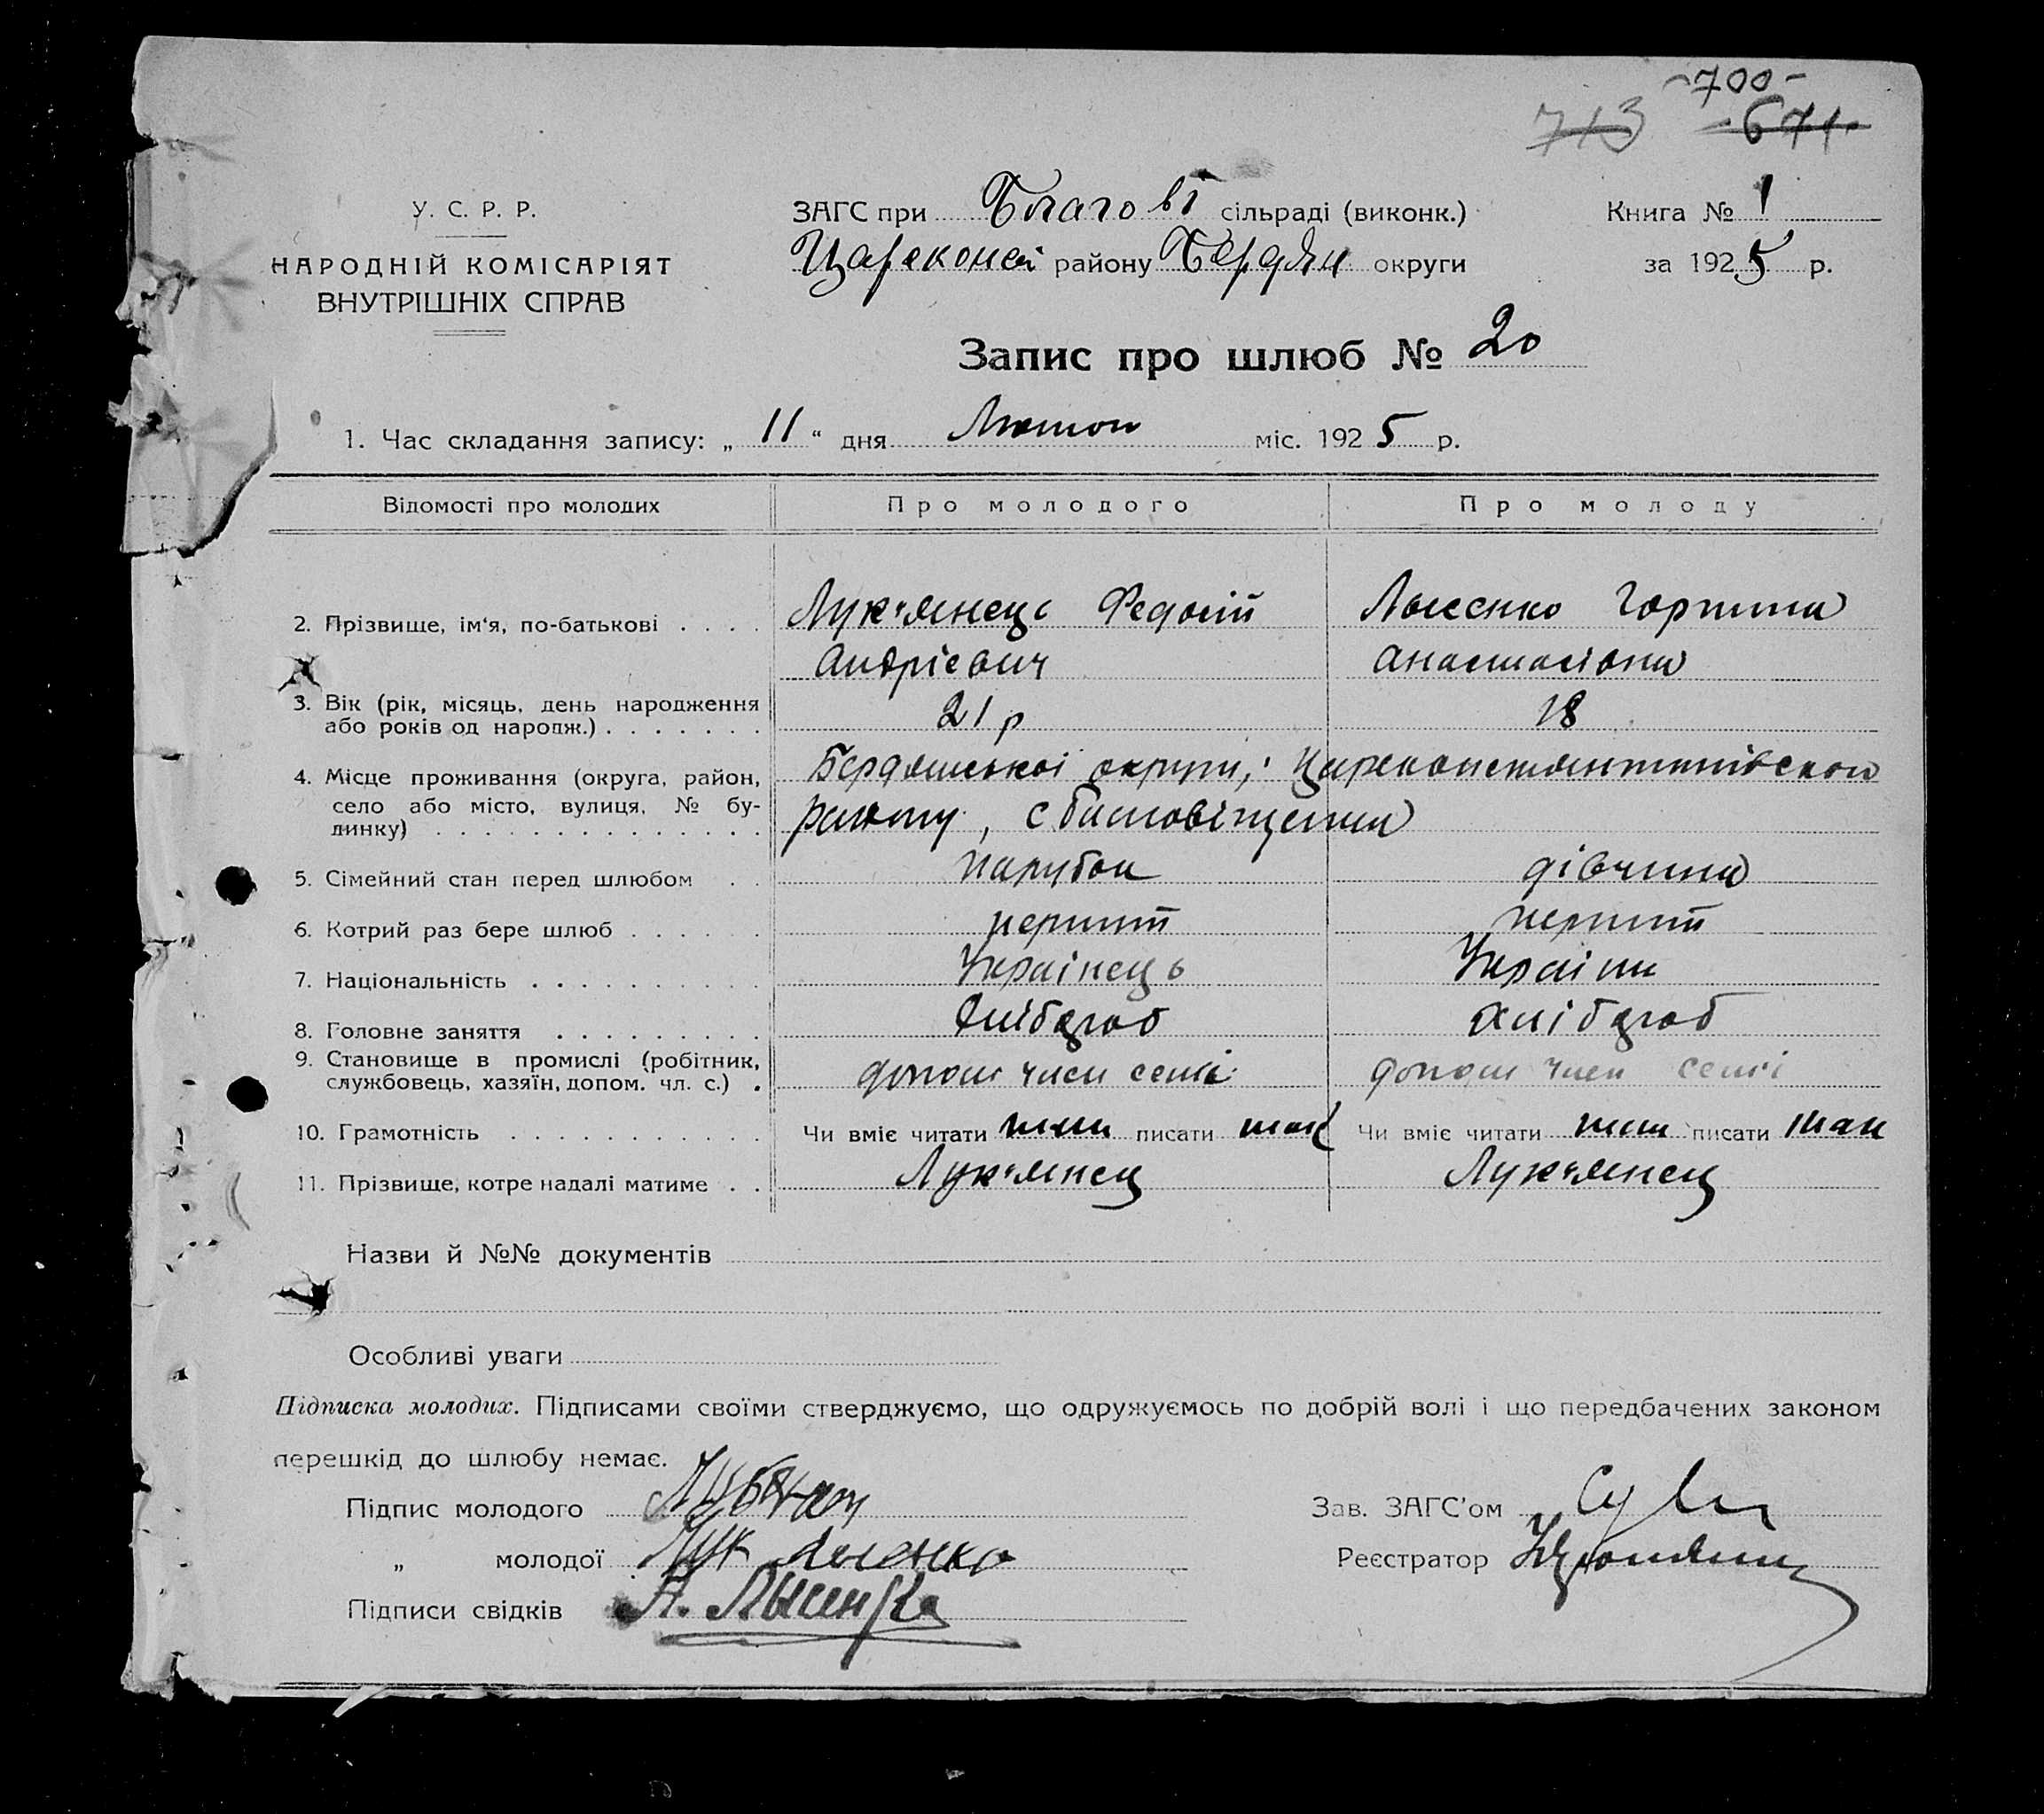 -700-
713 -671-
У. С. Р. Р.
НАРОДНІЙ КОМІСАРІЯТ
ВНУТРІШНІХ СПРАВ
ЗАГС при Благові сільраді (виконк.)
Книга № 1
Цареконс району Бердян округи
за 1925 р.
Запис про шлюб № 20
1. Час складання запису: „ 11 “ дня Лютого міс. 1925 р.
Відомості про молодих
Про молодого
Про молоду
2. Прізвище, ім'я, по-батькові . . . .
Лук'янець Федосій
Андрієвич
Лисенко Горпина
Анастасіовна
3. Вік (рік, місяць, день народження
або років од народж.) . . . . . . .
21 р
18
4. Місце проживання (округа, район,
село або місто, вулиця, № бу-
динку) . . . . . . . . . . . . . .
Бердянської округи, Цареконстянтинівского
району, с Благовіщенка
5. Сімейний стан перед шлюбом . .
парубок
дівчина
6. Котрий раз бере шлюб . . . . . .
перший
перший
7. Національність . . . . . . . . . .
Українець
Україн
8. Головне заняття . . . . . . . . .
Хлібороб
Хлібороб
9. Становище в промислі (робітник,
службовець, хазяїн, допом. чл. с.) .
допом член семі
допом член семі
10. Грамотність . . . . . . . . . . . .
Чи вміє читати так писати так
Чи вміє читати так писати так
11. Прізвище, котре надалі матиме . .
Лук'янец
Лук'янец
Назви й №№ документів
Особливі уваги
Підписка молодих. Підписами своїми стверджуємо, що одружуємось по добрій волі і що передбачених законом
перешкід до шлюбу немає.
Підпис молодого
Зав. ЗАГС'ом
„ молодої
Реєстратор
Підписи свідків А. Лысенко